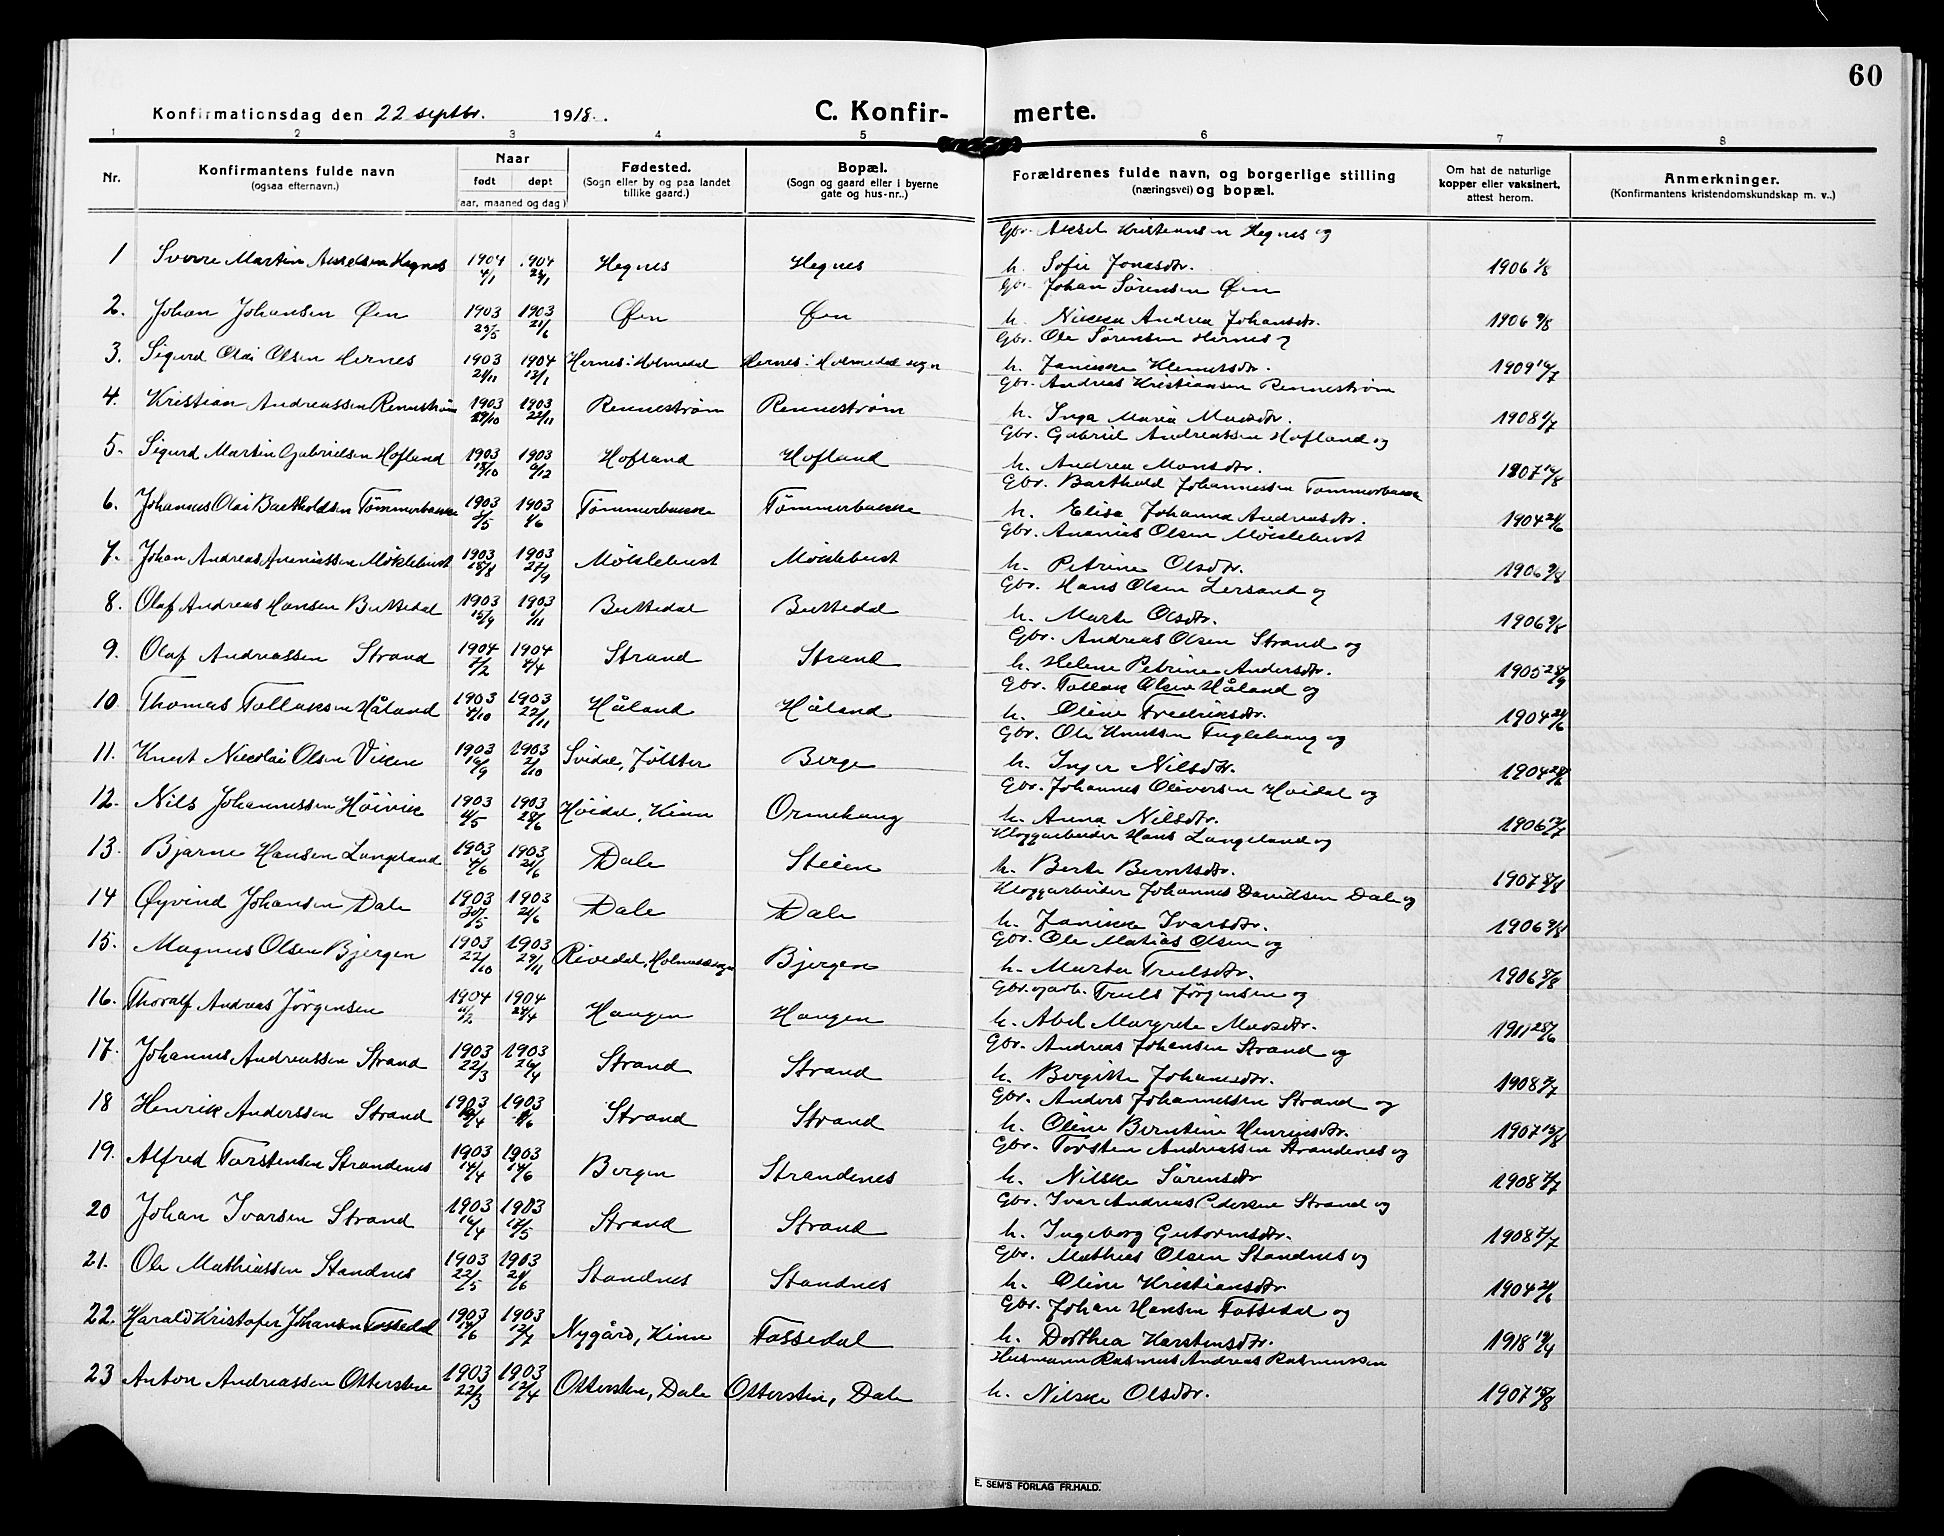 60
Konfirmationsdag den 22 septbr. 1918.
C. Konfir- merte.
1 2 3 4 5 6 7 8
Nr.
Konfirmantens fulde navn
(ogsaa efternavn.)
Naar
født døpt
(aar, maaned og dag)
Fødested.
(Sogn eller by og paa landet
tillike gaard.)
Bopæl.
(Sogn og gaard eller i byerne
gate og hus-nr..)
Forældrenes fulde navn, og borgerlige stilling
(næringsvei) og bopæl.
Om hat de naturlige
kopper eller vaksinert,
attest herom.
Anmerkninger.
(Konfirmantens kristendomskundskap m. v..)
Gbr. Aksel Kristiansen Hegnes og
1 Sverre Martin Akselsen Hegnes 1904 4/1 1904 24/1 Hegnes Hegnes h. Sofie Jonasdtr. 1906
Gbr. Johan Sørensen Øen
2. Johan Johansen Øen 1903 1903 21/6 Øen Øen h. Nikka Andrea Johansdtr. 1906 9/8
Gbr. Ole Sørensen Hernes og
3. Sigurd Olai Olsen Hernes 1903 21/11 1904 13/1 Hernes i Holmedal Hernes i Holmedal sogn h. Janikke Klemetsdtr. 1909
Gbr. Andreas Kristiansen Rennestrøm
4. Kristian Andreassen Rennestrøm 1903 1903 22/11 Rennestrøm Rennestrøm h. Inga Maria 1908
Gbr. Gabriel Andreassen Hofland og
5. Sigurd Martin Gabrielsen Hofland 1903 1903 6/12 Hofland Hofland h. Andrea Monsdtr. 1907
Gbr. Barthold Johannessen Tømmerbakke
6. Johannes Olai Bartholdsen Tømmerbakke 1903 1903 Tømmerbakke Tømmerbakke h. Elisa Johanna Andreasdtr. 1904
Gbr. Ananias Olsen Møklebust
7. Johan Andreas Ananiassen Møklebust 1903 18/8 1903 27/9 Møklebust Møklebust h. Petrine Olsdtr. 1906 9/8
Gbr. Hans Olsen Lersand og
8. Olaf Andreas Hansen Buttedal 1903 15/9 1903 1/11 Buttedal Buttedal h. Marte Olsdtr. 1906 9/8
Gbr. Andreas Olsen Strand og
9. Olaf Andreassen Strand 1904 1904 4/4 Strand Strand h. Helene Petrine Andersdtr. 1905 28/9
Gbr. Tollak Olsen Håland og
10. Thomas Tollaksen Håland 1903 4/10 1903 22/11 Håland Håland h. Oline Fredriksdtr. 1904
Gbr. Ole Knutsen Fuglehaug og
11. Knut Nicolai Olsen Viken 1903 16/9 1903 2/10 Svidal, Jølster Berge h. Inger Nilsdtr. 1904
Gbr. Johannes Oliversen Høidal og
12. Nils Johannessen Høivik 1903 4/5 1903 28/6 Høidal, Kinn Ormehaug h. Anna Nilsdtr. 1906
Kloggarbeider Hans Langeland og
13. Bjarne Hansen Langeland 1903 4/6 1903 21/6 Dale Steien h. Berte Berntsdtr. 1907 8/8
Kloggarbeider Johannes Davidsen Dale og
14 Øyvind Johansen Dale 1903 30/5 1903 21/6 Dale Dale h. Janikke Ivarsdtr. 1906 9/8
Gbr. Ole Matias Olsen og
15. Magnus Olsen Bjergen 1903 22/10 1903 29/11 Rivedal, Holmedal sogn Bjergen h. Marta Trulsdtr. 1906 8/8
Gbr. og arb. Truls Jørgensen og
16. Thoralf Andreas Jørgensen 1904 1904 24/4 Haugen Haugen h. Abel Margrete 1911 28/6
Gbr. Andreas Johansen Strand og
17. Johannes Andreassen Strand 1903 22/3 1903 26/4 Strand Strand h. Bergitte Johansdtr. 1908
Gbr. Anders Johannessen Strand og
18 Henrik Anderssen Strand 1903 1903 Strand Strand h. Oline Berntine Henriksdtr. 1907
Gbr. Torsten Andreassen Strandenes og
19. Alfred Torstensen Strandenes 1903 14/4 1903 14/6 Bergen Strandenes h. Nilske Sørensdtr 1908
Gbr. Ivar Andreas Pedersen Strand og
20 Johan Ivarsen Strand 1903 16/4 1903 17/5 Strand Strand h. Ingeborg Gutormsdtr. 1908
Gbr. Mathias Olsen Standnes og
21. Ole Mathiassen Standnes 1903 22/5 1903 21/6 Standnes Standnes h. Oline Kristiansdtr 1904
Gbr. Johan Hansen Fossedal og
22. Harald Kristofer Johansen Fossedal 1903 1903 12/7 Nygård, Kinn Fossedal h. Dorthea Karstensdtr. 1918
Husmann Rasmus Andreas Rasmussen
23 Anton Andreassen Ottersten 1903 22/3 1903 12/4 Ottersten, Dale Ottersten, Dale h. Nilske Olsdtr. 1907
E. SEM'S FORLAG FR.HALD.